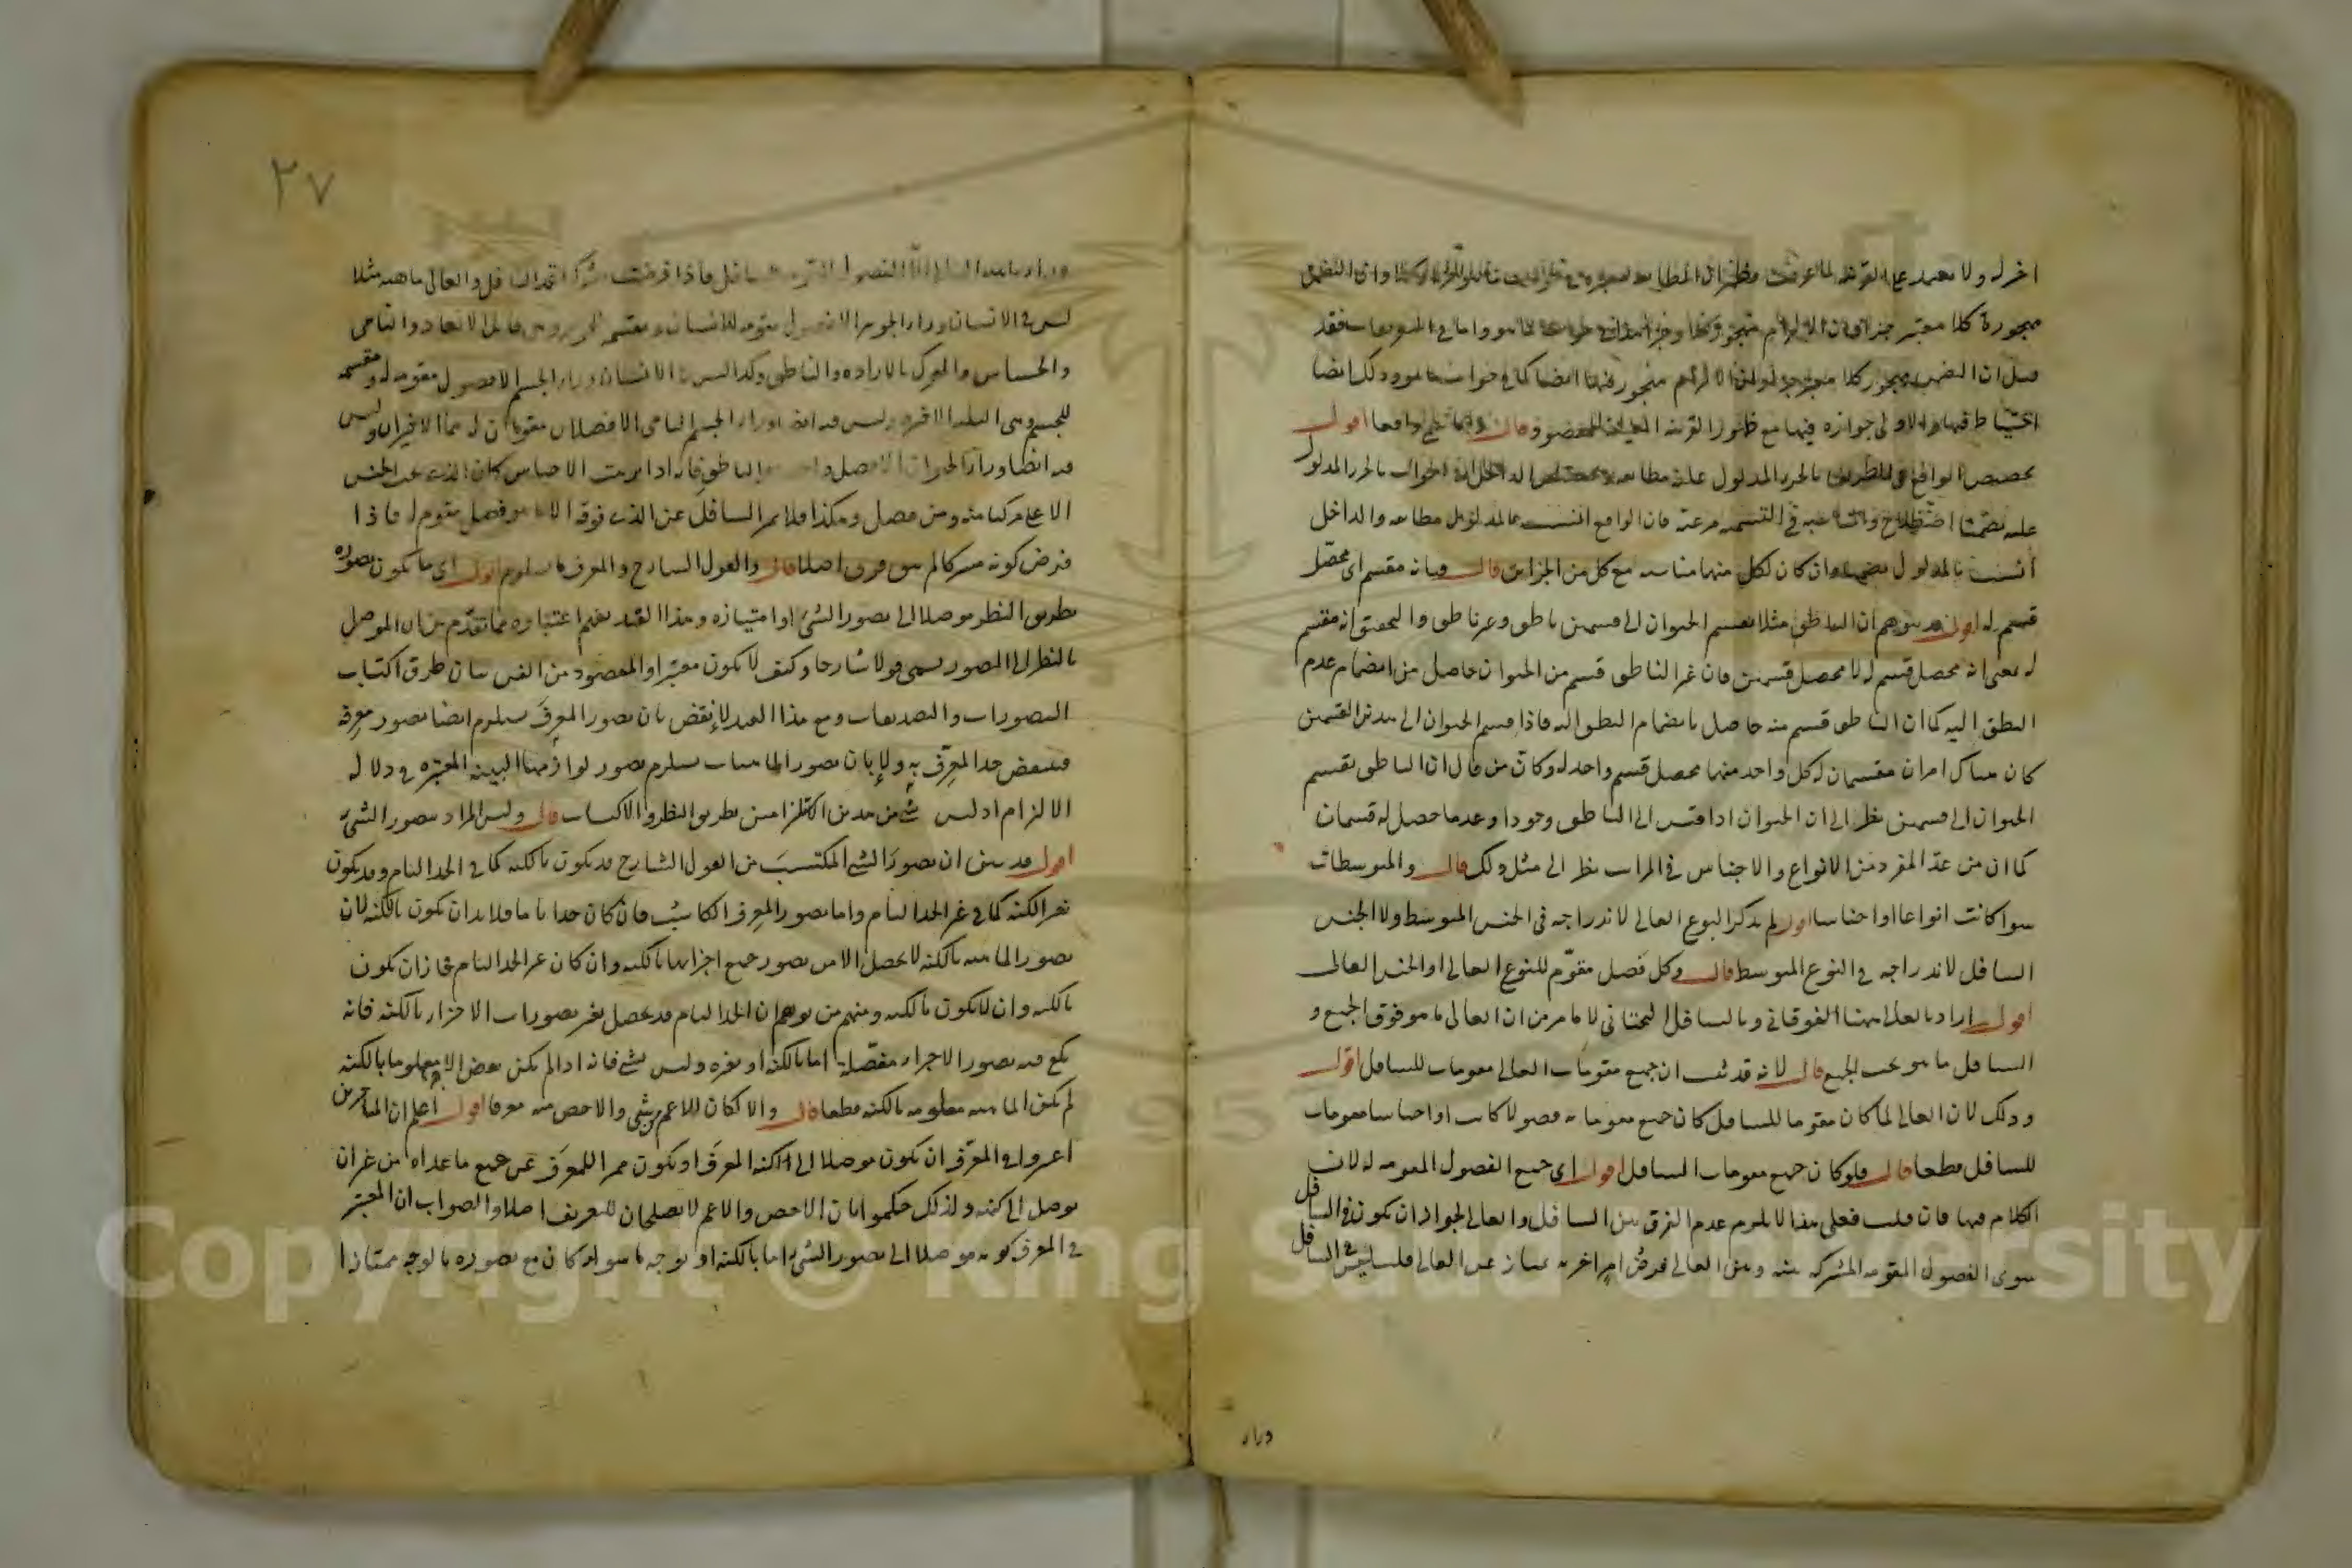 اخر له ولا يعتمد على القرينة لما عرفت
مهجورة كلا معتبر جزاؤه فان الالتزام مهجور
قيل ان التضمن مهجور كلا الالتزام مهجور فيها ايضا كما في جواب ما هو وذلك ايضا
احتياط فيها والاولى جوازه فيها مع ظهور القرينة المعينة للمقصود قال اقول
تخصيص الواقع في الطريق بالجزء المدلول عليه مطابقة الداخل في الجواب بالجزء المدلول
عليه تضمنا اصطلاح والمناسبة في التسمية مرعية فان الواقع انسب بالمدلول مطابقة والداخل
انسب بالمدلول تضمنا وان كان لكل منهما مناسبة مع كل من الجزاين قال وبانه مقسم اي محصل
قسم له اقول قد يتوهم ان الناطق مثلا يقسم الحيوان الى قسمين ناطق وغير ناطق والتحقيق انه مقسم
له بمعنى انه محصل قسم له لا محصل قسمين فان غير الناطق قسم من الحيوان حاصل من انضمام عدم
النطق اليه كما ان الناطق قسم منه حاصل بانضمام النطق اليه فاذا قسم الحيوان الى هذين القسمين
كان هناك امران مقسمان له كل واحد منهما محصل قسم واحد له وكان من قال ان الناطق يقسم
الحيوان الى قسمين نظر الى ان الحيوان اذا قيس الى الناطق وجودا وعدما حصل له قسمان
كما ان من عد المفرد من الانواع والاجناس في المراتب نظر الى مثل ذلك قال والمتوسطات
سواء كانت انواعا او اجناسا اقول لم يذكر النوع العالي لاندراجه في الجنس المتوسط ولا الجنس
السافل لاندراجه في النوع المتوسط قال وكل فصل مقوّم للنوع العالي او الجنس العالي
اقول اراد بالعالي ههنا الفوقاني وبالسافل التحتاني لا ما مر من ان العالي ما هو فوق الجميع و
السافل ما هو تحت الجميع قال لانه قد ثبت ان جميع مقومات العالي مقومات للسافل اقول
وذلك لان العالي لما كان مقوما للسافل كان جميع مقوماته فصولا كانت او اجناسا مقومات
للسافل قطعا قال فلو كان جميع مقومات السافل اقول اي جميع الفصول المقومة له لان
الكلام فيها فان قلت فعلى هذا لا يلزم عدم الفرق بين السافل والعالي لجواز ان يكون في السافل
سوى الفصول المقومة المشتركة بينه وبين العالي فرض امر اخر به يمتاز عن العالي قلت ليس في السافل
وراء
٢٧
وراء ما هية العالي الا الفصول فاذا فرضت مشتركة اتحد السافل والعالي ماهية مثلا
ليس في الانسان وراء الجوهر الا فصول مقومة للانسان ومقسمة للجوهر وهي قابل الابعاد والنامي
والحساس والمتحرك بالارادة والناطق وكذا ليس في الانسان وراء الجسم الا فصول مقومة له ومقسمة
للجسم وهي الثلثة الاخيرة وليس فيه ايضا وراء الجسم النامي الا فصلان مقومان له هما الاخيران وليس
فيه ايضا وراء الحيوان الا فصل واحد هو الناطق فانه اذا ترتبت الاجناس كان الذي تحت الجنس
الاعلى مركبا منه ومن فصل وهكذا فلا يمتاز السافل عن الذي فوقه الا بما هو فصل مقوم له فاذا
فرض كونه مشتركا لم يبق فرق اصلا قال والقول الشارح والمعرف ما يستلزم اقول اي ما يكون تصوره
بطريق النظر موصلا الى تصور الشيء او امتيازه وهذا القيد يفهم اعتباره مما تقدم من ان الموصل
بالنظر الى التصور يسمى قولا شارحا وكيف لا يكون معتبرا والمقصود من الفن بيان طرق اكتساب
التصورات والتصديقات ومع هذا القيد لا ينقض بان تصور المعرَّف يستلزم ايضا تصور معرِّفه
فينتقض حد المعرِّف به ولا بان تصور الماهيات يستلزم تصور لوازمها البينة المعتبرة في دلالة
الالتزام اذ ليس شيء من هذين الاستلزامين بطريق النظر والاكتساب قال وليس المراد بتصور الشيء
اقول قد تبين ان تصور الشيء المكتسب من القول الشارح قد يكون بالكنه كما في الحد التام وقد يكون
بغير الكنه كما في غير الحد التام واما تصور المعرف الكاسب فان كان حدا تاما فلا بد ان يكون بالكنه لان
تصور الماهية بالكنه لا يحصل الا من تصور جميع اجزائها بالكنه وان كان غير الحد التام جاز ان يكون
بالكنه وان لا يكون بالكنه ومنهم من توهم ان الحد التام قد يحصل بغير تصورات الاجزاء بالكنه فانه
يكفي فيه تصور الاجزاء مفصلة اما بالكنه او بغيره وليس بشيء فانه اذا لم يكن بعض الاجزاء معلوما بالكنه
لم تكن الماهية معلومة بالكنه قطعا قال والا لكان الاعم من شيء والاخص منه معرفا اقول اعلم ان المتاخرين
اعتبروا في المعرف ان يكون موصلا الى كنه المعرف او يكون مميزا للمعرف عن جميع ما عداه من غير ان
يوصل الى كنهه ولذلك حكموا بان الاخص والاعم لا يصلحان للتعريف اصلا والصواب ان المعتبر
في المعرف كونه موصلا الى تصور الشيء اما بالكنه او بوجه ما سواء كان مع تصوره بالوجه ممتازا
Copyright © King Saud University